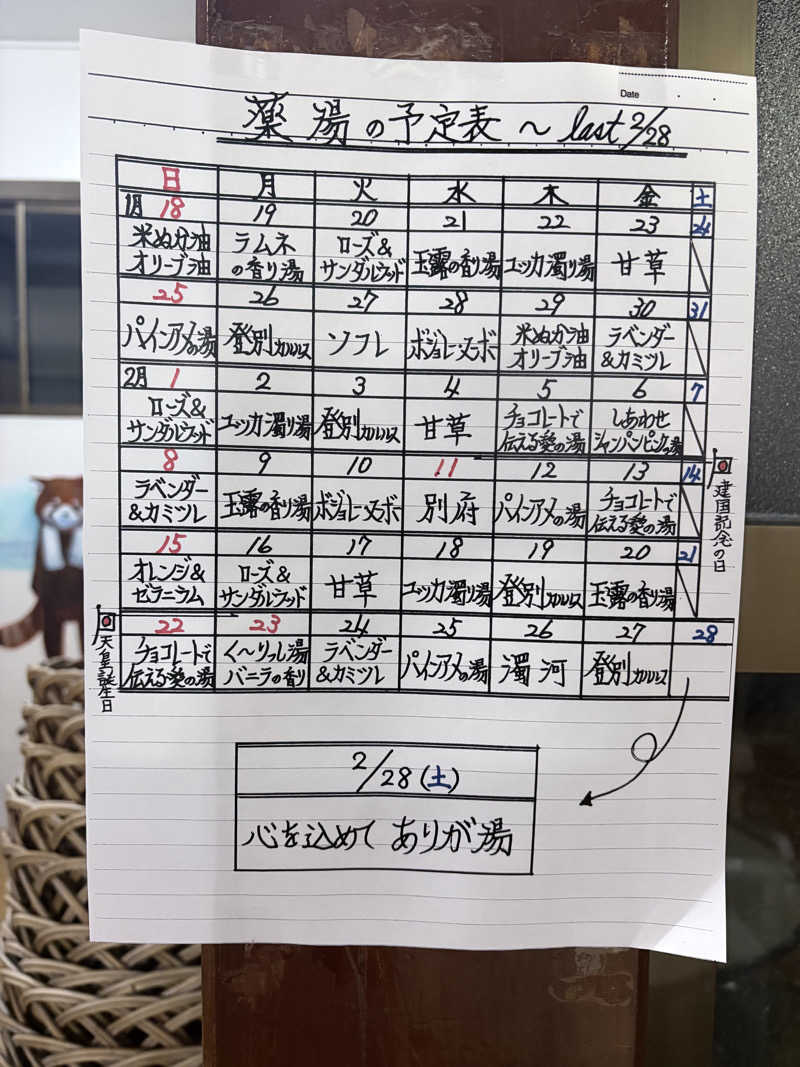 Date
薬湯の予定表~last 2/28
日 月 火 水 木 金 土
1月 18 19 20 21 22 23 24
米ぬか油 オリーブ油 ラムネの香り湯 ローズ&サンダルウッド 玉露の香り湯 ユッカ濁り湯 甘草
25 26 27 28 29 30 31
パインアメの湯 登別カルルス ソフレ ボジョレ・ヌーボ 米ぬか油 オリーブ油 ラベンダー&カミツレ
2月 1 2 3 4 5 6 7
ローズ&サンダルウッド ユッカ濁り湯 登別カルルス 甘草 チョコレートで伝える愛の湯 しあわせシャンパンピンクの湯
8 9 10 11 12 13 14
建国記念の日
ラベンダー&カミツレ 玉露の香り湯 ボジョレ・ヌーボ 別府 パインアメの湯 チョコレートで伝える愛の湯
15 16 17 18 19 20 21
オレンジ&ゼラニウム ローズ&サンダルウッド 甘草 ユッカ濁り湯 登別カルルス 玉露の香り湯
22 23 24 25 26 27 28
天皇誕生日
チョコレートで伝える愛の湯 く〜りっし湯バニラの香り ラベンダー&カミツレ パインアメの湯 濁河 登別カルルス
2/28(土)
心を込めて ありが湯